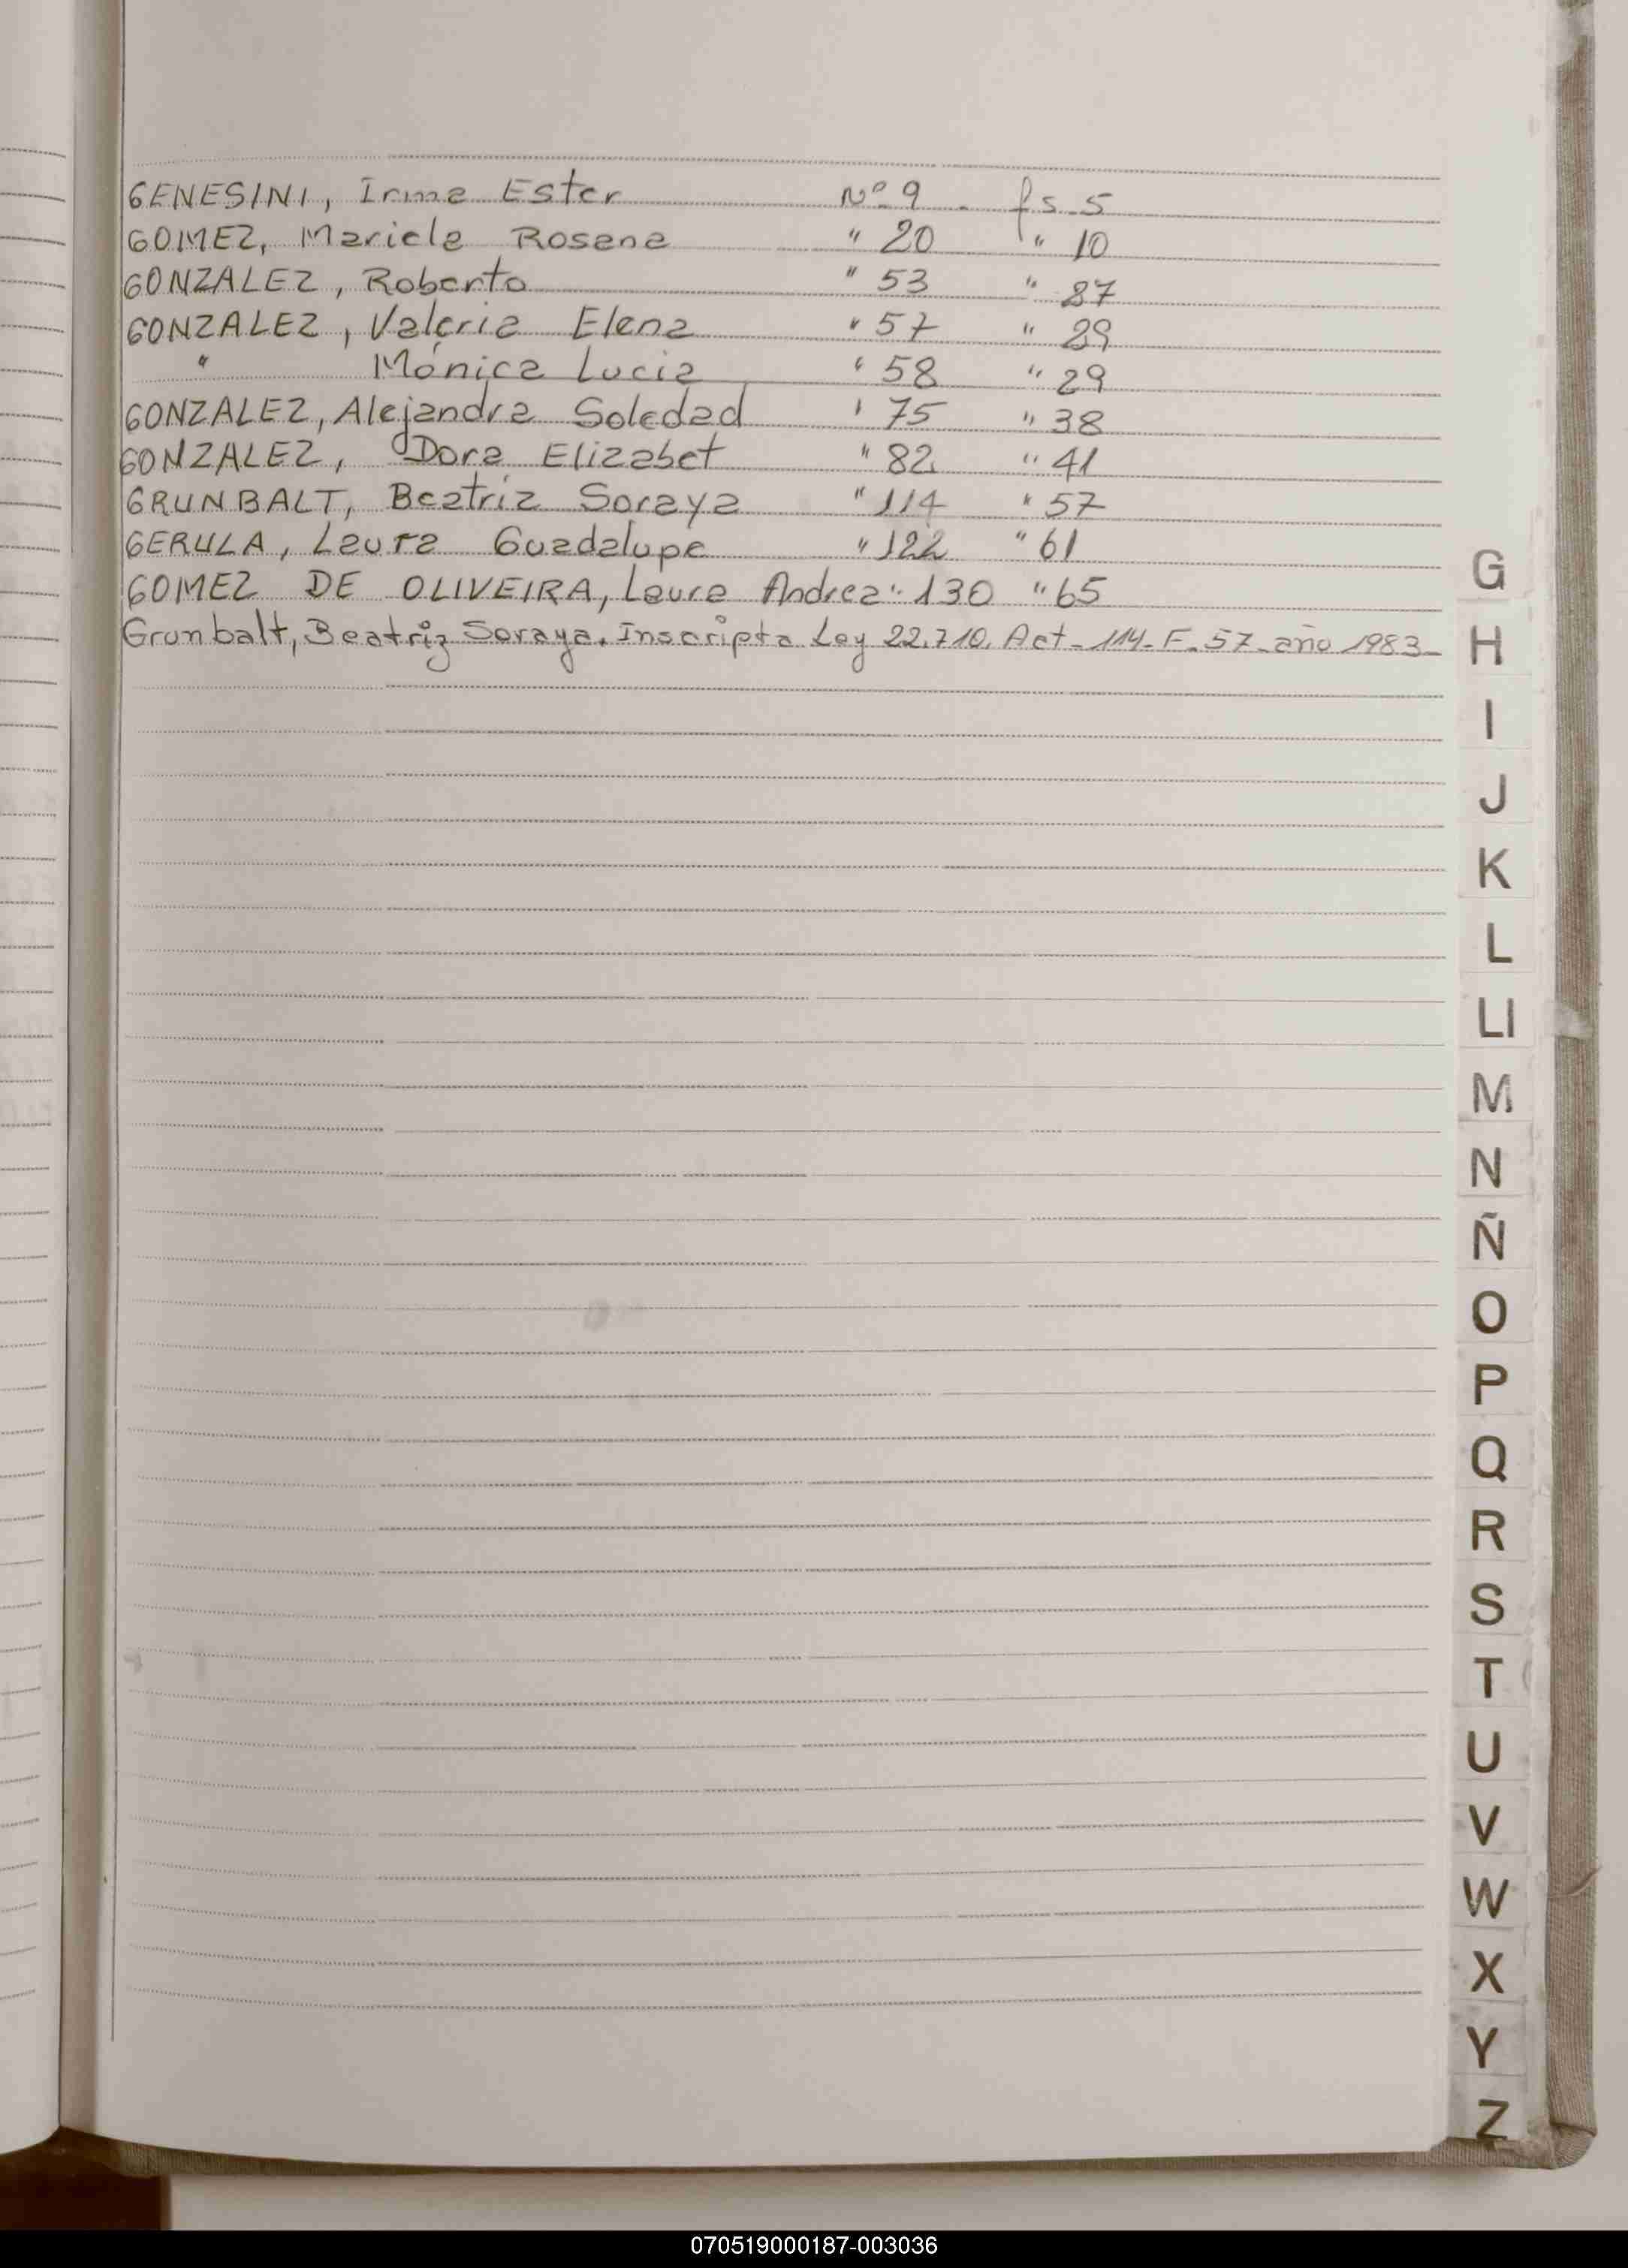 GENESINI, Irma Ester Nº 9 - fs. 5
GOMEZ, Mariela Rosana " 20 " 10
GONZALEZ, Roberto " 53 " 27
GONZALEZ, Valeria Elena " 57 " 29
" Mónica Lucia " 58 " 29
GONZALEZ, Alejandra Soledad " 75 " 38
GONZALEZ, Dora Elizabet " 82 " 41
GRUNBALT, Beatriz Soraya " 114 " 57
GERULA, Laura Guadalupe " 122 " 61
GOMEZ DE OLIVEIRA, Laura Andrea " 130 " 65
Grunbalt, Beatriz Soraya. Inscripta Ley 22.710. Act - 114 - F. 57 - año 1983 -
G
H
I
J
K
L
Ll
M
N
Ñ
O
P
Q
R
S
T
U
V
W
X
Y
Z
070519000187-003036